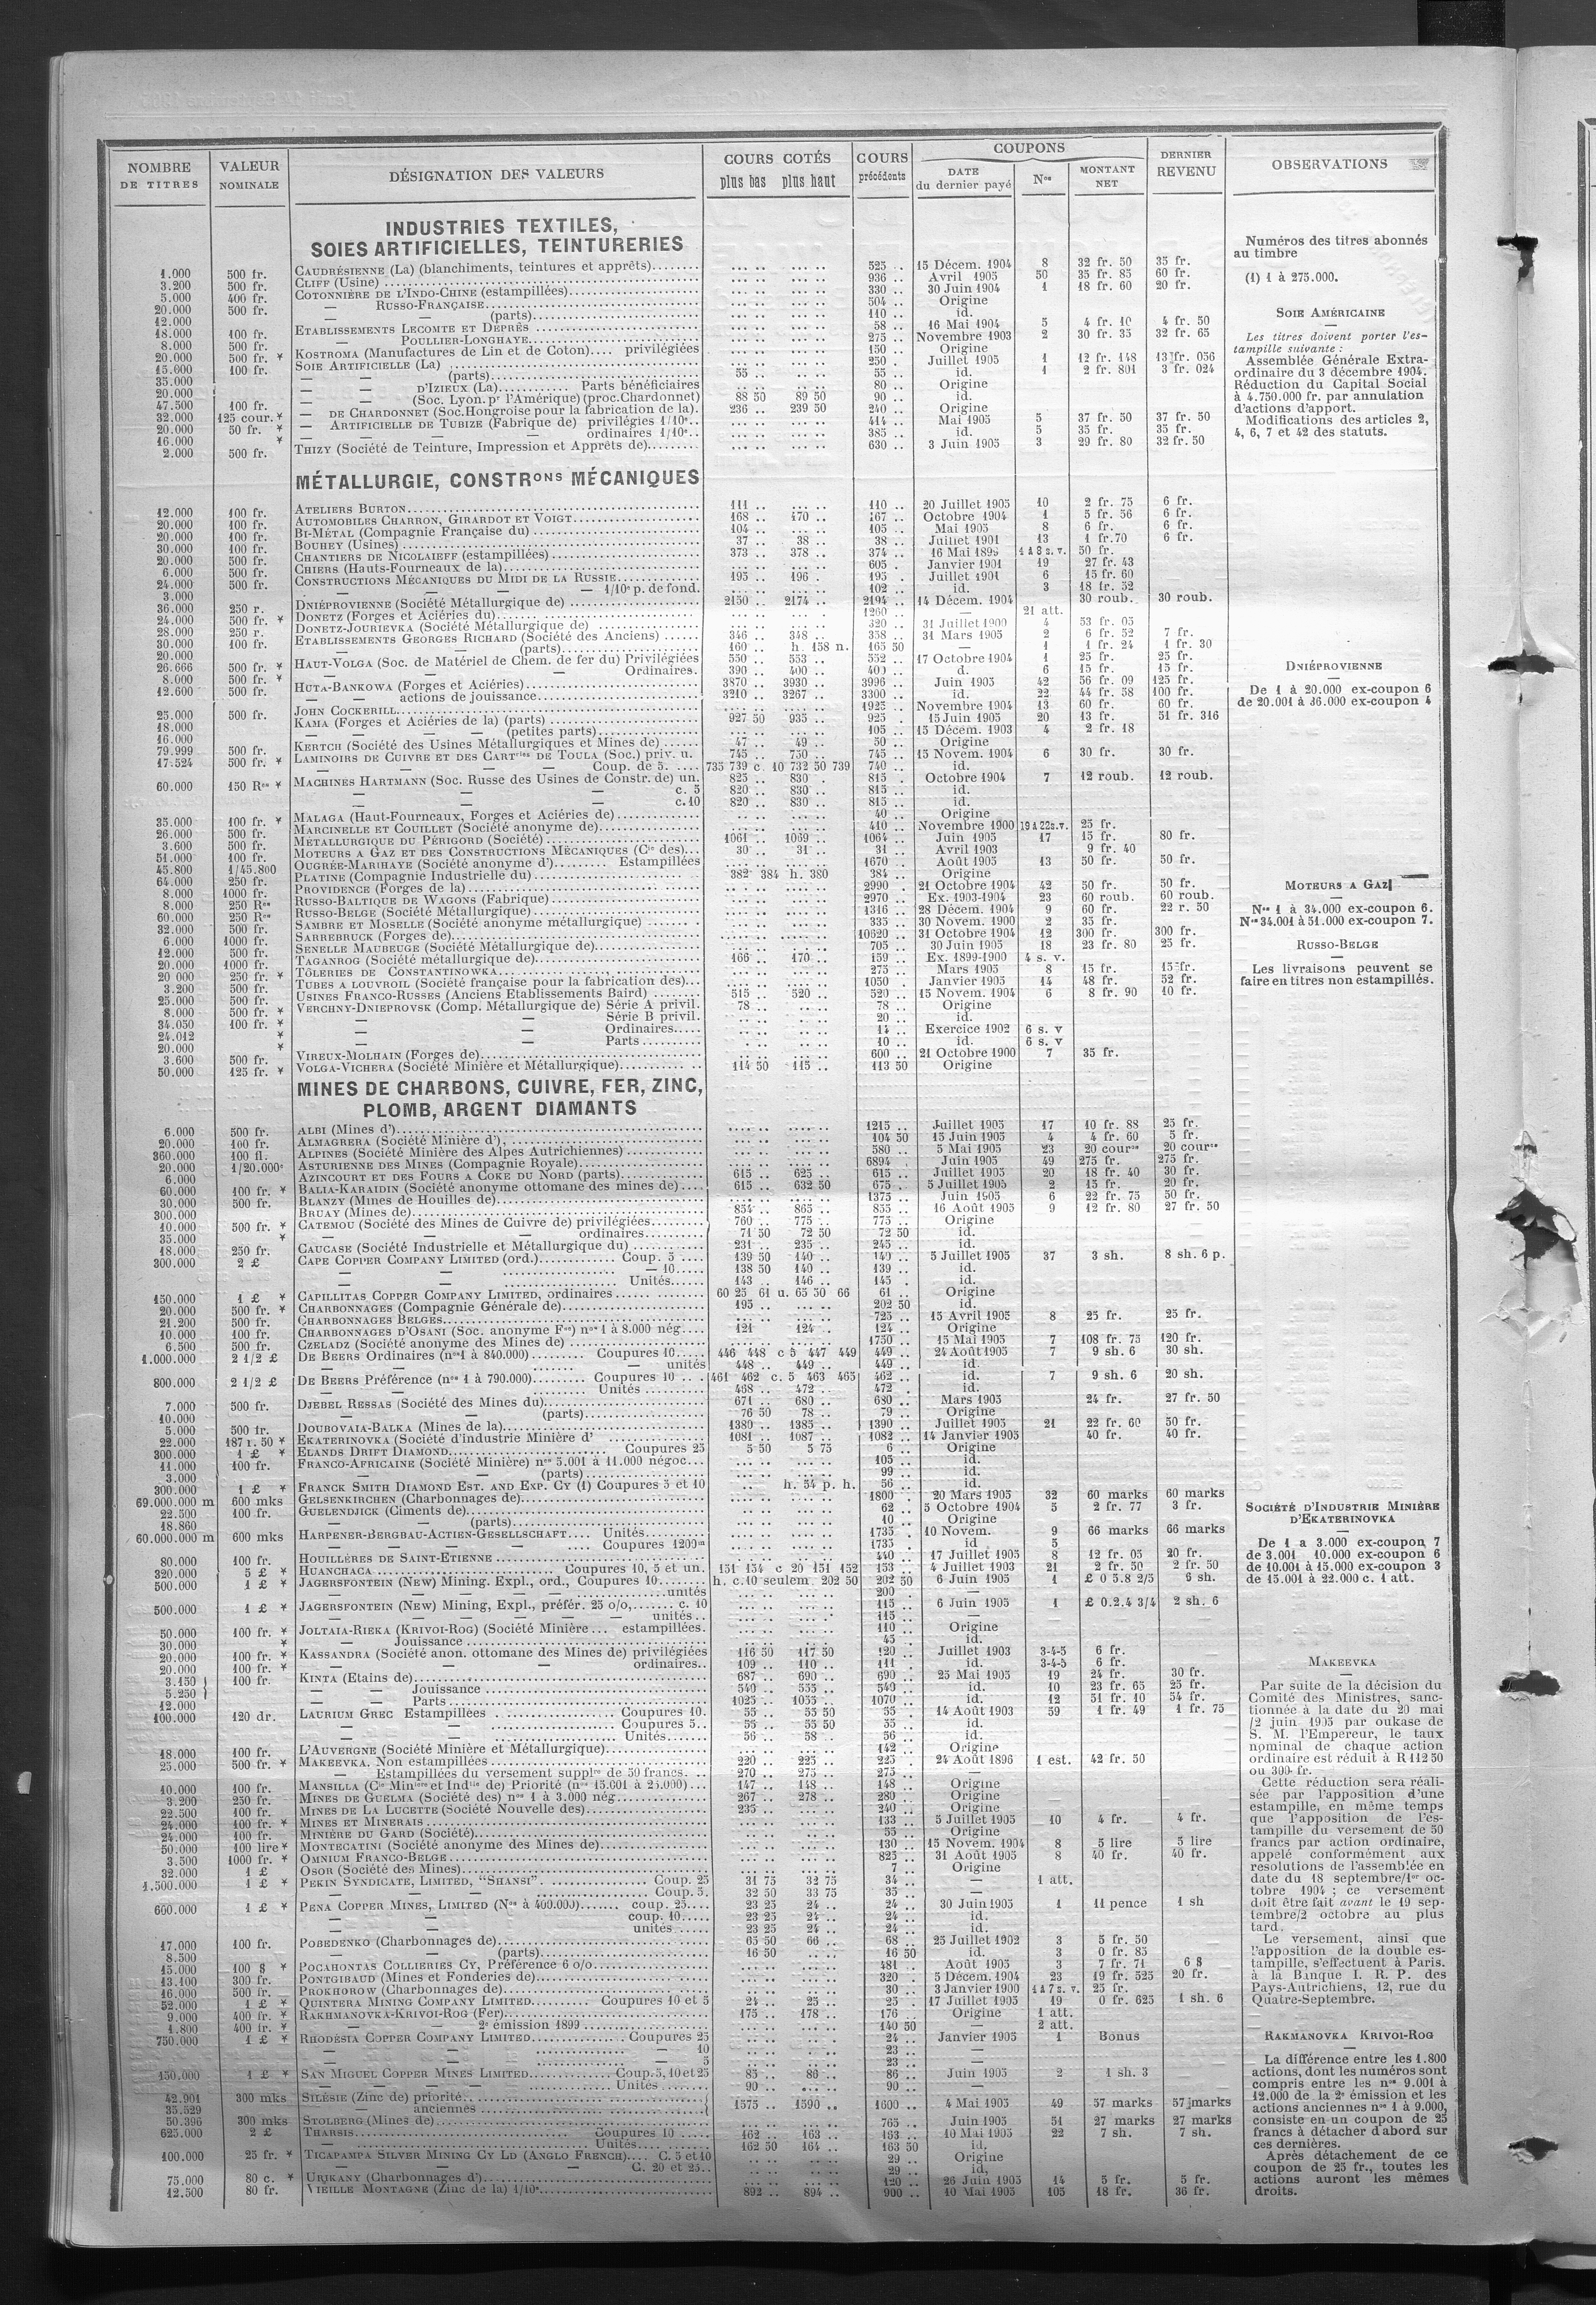 NOMBRE DE TITRES | VALEUR NOMINALE | DÉSIGNATION DES VALEURS | COURS COTÉS plus bas plus haut | COURS précédents | COUPONS DATE du dernier payé | Nos | MONTANT NET | DERNIER REVENU | OBSERVATIONS
INDUSTRIES TEXTILES,
SOIES ARTIFICIELLES, TEINTURERIES
1.000 500 fr. CAUDRÉSIENNE (La) (blanchiments, teintures et apprêts) 525 .. 15 Décem. 1904 8 32 fr. 50 35 fr.
3.200 500 fr. CLIFF (Usine) 936 .. Avril 1905 50 35 fr. 85 60 fr.
5.000 400 fr. COTONNIÈRE DE L'INDO-CHINE (estampillées) 330 .. 30 Juin 1904 1 18 fr. 60 20 fr.
20.000 500 fr. — RUSSO-FRANÇAISE 504 .. Origine
12.000 — (parts) 110 .. id.
18.000 100 fr. ETABLISSEMENTS LECOMTE ET DEPRÈS 58 .. 16 Mai 1904 5 4 fr. 10 4 fr. 50
8.000 500 fr. — POULLIER-LONGHAYE 275 .. Novembre 1903 2 30 fr. 35 32 fr. 65
20.000 500 fr. * KOSTROMA (Manufactures de Lin et de Coton) privilégiées 150 .. Origine
15.600 100 fr. SOIE ARTIFICIELLE (La) 250 .. Juillet 1905 1 12 fr. 148 13 fr. 056
35.000 — — (parts) 55 .. 55 .. id. 1 2 fr. 801 3 fr. 024
20.000 — — D'IZIEUX (La) Parts bénéficiaires 80 .. Origine
47.500 100 fr. — — (Soc. Lyon. pr l'Amérique) (proc. Chardonnet) 88 50 89 50 90 .. id.
32.000 125 cour. * — DE CHARDONNET (Soc. Hongroise pour la fabrication de la). 236 .. 239 50 240 .. Origine
20.000 50 fr. * — ARTIFICIELLE DE TUBIZE (Fabrique de) privilégies 1/10e 414 .. Mai 1905 5 37 fr. 50 37 fr. 50
16.000 * — — — — ordinaires 1/10e 385 .. id. 5 35 fr. 35 fr.
2.000 500 fr. THIZY (Société de Teinture, Impression et Apprêts de) 630 .. 3 Juin 1905 3 29 fr. 80 32 fr. 50
MÉTALLURGIE, CONSTRons MÉCANIQUES
12.000 100 fr. ATELIERS BURTON 111 .. 110 .. 20 Juillet 1905 10 2 fr. 75 6 fr.
20.000 100 fr. AUTOMOBILES CHARRON, GIRARDOT ET VOIGT 168 .. 170 .. 167 .. Octobre 1904 1 5 fr. 56 6 fr.
20.000 100 fr. BI-MÉTAL (Compagnie Française du) 104 .. 105 .. Mai 1905 8 6 fr. 6 fr.
30.000 100 fr. BOUHEY (Usines) 37 .. 38 .. 38 .. Juillet 1901 13 1 fr.70 6 fr.
20.000 500 fr. CHANTIERS DE NICOLAIEFF (estampillées) 373 .. 378 .. 374 .. 16 Mai 1899 1 à 8 s. v. 50 fr.
6.000 500 fr. CHIERS (Hauts-Fourneaux de la) 605 . Janvier 1901 19 27 fr. 43
24.000 500 fr. CONSTRUCTIONS MÉCANIQUES DU MIDI DE LA RUSSIE 195 .. 196 . 195 . Juillet 1901 6 15 fr. 60
3.000 — — — — 1/10e p. de fond. 102 .. id. 3 18 fr. 52
36.000 250 r. DNIÉPROVIENNE (Société Métallurgique de) 2150 .. 2174 .. 2194 .. 14 Décem. 1904 30 roub. 30 roub.
24.000 500 fr. * DONETZ (Forges et Aciéries du) 1260 .. — 21 att.
28.000 250 r. DONETZ-JOURIEVKA (Société Métallurgique de) 320 .. 31 Juillet 1900 4 53 fr. 05
30.000 100 fr. ETABLISSEMENTS GEORGES RICHARD (Société des Anciens) 346 .. 348 .. 358 .. 31 Mars 1905 2 6 fr. 52 7 fr.
20.000 — — (parts) 160 .. h. 158 n. 165 50 — 1 1 fr. 24 1 fr. 30
26.666 500 fr. * HAUT-VOLGA (Soc. de Matériel de Chem. de fer du) Privilégiées 550 .. 553 .. 552 .. 17 Octobre 1904 1 25 fr. 25 fr.
8.000 500 fr. * — — — Ordinaires. 390 .. 400 .. 400 .. d. 6 15 fr. 15 fr.
12.600 500 fr. HUTA-BANKOWA (Forges et Aciéries) 3870 .. 3930 .. 3996 .. Juin 1905 42 56 fr. 09 125 fr.
— — actions de jouissance 3210 .. 3267 .. 3300 .. id. 22 44 fr. 58 100 fr.
25.000 500 fr. JOHN COCKERILL 1925 .. Novembre 1904 13 60 fr. 60 fr.
18.000 KAMA (Forges et Aciéries de la) (parts) 927 50 935 .. 925 . 15 Juin 1905 20 13 fr. 51 fr. 316
16.000 — — — — (petites parts) 105 .. 15 Décem. 1903 4 2 fr. 18
79.999 500 fr. KERTCH (Société des Usines Métallurgiques et Mines de) 47 .. 49 .. 50 .. Origine
17.524 500 fr. * LAMINOIRS DE CUIVRE ET DES CARTries DE TOULA (Soc.) priv. u. 745 .. 750 .. 745 .. 15 Novem. 1904 6 30 fr. 30 fr.
— — — Coup. de 5. 735 739 c. 10 732 50 739 740 .. id.
60.000 150 Rs * MACHINES HARTMANN (Soc. Russe des Usines de Constr. de) un. 825 .. 830 . 815 . Octobre 1904 7 12 roub. 12 roub.
— — — c. 5 820 .. 830 .. 815 .. id.
— — — c.10 820 .. 830 .. 815 .. id.
35.000 100 fr. * MALAGA (Haut-Fourneaux, Forges et Aciéries de) 40 .. Origine
26.000 500 fr. MARCINELLE ET COUILLET (Société anonyme de) 410 .. Novembre 1900 19 à 22 s.v. 25 fr.
3.600 500 fr. MÉTALLURGIQUE DU PÉRIGORD (Société) 1061 .. 1069 .. 1064 .. Juin 1905 17 15 fr. 80 fr.
51.000 100 fr. MOTEURS A GAZ ET DES CONSTRUCTIONS MÉCANIQUES (Cie des) 30 .. 31 .. 31 .. Avril 1903 9 fr. 40
45.800 1/45.800 OUGRÉE-MARIHAYE (Société anonyme d') Estampillées 1670 .. Août 1905 13 50 fr. 50 fr.
64.000 250 fr. PLATINE (Compagnie Industrielle du) 382 384 h. 380 384 .. Origine
8.000 1000 fr. PROVIDENCE (Forges de la) 2990 . 21 Octobre 1904 42 50 fr. 50 fr.
8.000 250 Rs RUSSO-BALTIQUE DE WAGONS (Fabrique) 2970 .. Ex. 1903-1904 23 60 roub. 60 roub.
60.000 250 Rs RUSSO-BELGE (Société Métallurgique) 1316 .. 28 Décem. 1904 9 60 fr. 22 r. 50
32.000 500 fr. SAMBRE ET MOSELLE (Société anonyme métallurgique) 335 .. 30 Novem. 1900 2 35 fr.
6.000 1000 fr. SARREBRUCK (Forges de) 10620 .. 31 Octobre 1904 12 300 fr. 300 fr.
12.000 500 fr. SENELLE MAUBEUGE (Société Métallurgique de) 705 .. 30 Juin 1905 18 23 fr. 80 25 fr.
20.000 1000 fr. TAGANROG (Société métallurgique de) 166 .. 170 .. 159 .. Ex. 1899-1900 4 s. v.
20 000 250 fr. * TÔLERIES DE CONSTANTINOWKA 275 .. Mars 1905 8 15 fr. 15 fr.
3.200 500 fr. TUBES A LOUVROIL (Société française pour la fabrication des) 1050 . Janvier 1905 14 48 fr. 52 fr.
25.000 500 fr. USINES FRANCO-RUSSES (Anciens Etablissements Baird) 515 .. 520 .. 520 .. 15 Novem. 1904 6 8 fr. 90 10 fr.
8.000 500 fr. * VERCHNY-DNIEPROVSK (Comp. Métallurgique de) Série A privil. 78 .. 78 .. Origine
34.050 100 fr. * — — Série B privil. 20 .. id.
24.012 * — — Ordinaires 14 .. Exercice 1902 6 s. v
20.000 * — — Parts 10 .. id. 6 s. v
3.600 500 fr. VIREUX-MOLHAIN (Forges de) 600 .. 21 Octobre 1900 7 35 fr.
50.000 125 fr. * VOLGA-VICHERA (Société Minière et Métallurgique) 114 50 115 .. 113 50 Origine
MINES DE CHARBONS, CUIVRE, FER, ZINC,
PLOMB, ARGENT DIAMANTS
6.000 500 fr. ALBI (Mines d') 1215 .. Juillet 1905 17 10 fr. 88 25 fr.
20.000 100 fr. ALMAGRERA (Société Minière d') 104 50 15 Juin 1905 4 4 fr. 60 5 fr.
360.000 100 fl. ALPINES (Société Minière des Alpes Autrichiennes) 580 .. 5 Mai 1905 23 20 cour 20 cour
20.000 1/20.000e ASTURIENNE DES MINES (Compagnie Royale) 6894 . Juin 1905 49 275 fr. 275 fr.
6.000 AZINCOURT ET DES FOURS A COKE DU NORD (parts) 615 .. 625 .. 615 .. Juillet 1905 20 18 fr. 40 30 fr.
60.000 100 fr. * BALIA-KARAIDIN (Société anonyme ottomane des mines de) 615 .. 632 50 675 .. 5 Juillet 1905 2 15 fr. 20 fr.
30.000 500 fr. BLANZY (Mines de Houilles de) 1375 .. Juin 1905 6 22 fr. 75 50 fr.
300.000 BRUAY (Mines de) 854 .. 865 .. 855 .. 16 Août 1905 9 12 fr. 80 27 fr. 50
10.000 500 fr. * CATEMOU (Société des Mines de Cuivre de) privilégiées 760 .. 775 .. 775 .. Origine
35.000 * — — — ordinaires 71 50 72 50 72 50 id.
18.000 250 fr. CAUCASE (Société Industrielle et Métallurgique du) 231 .. 235 .. 245 .. id.
300.000 2 £ CAPE COPPER COMPANY LIMITED (ord.) Coup. 5 139 50 140 .. 140 .. 5 Juillet 1905 37 3 sh. 8 sh. 6 p.
— — — 10 138 50 140 .. 139 .. id.
— — Unités 143 .. 146 .. 145 . id.
150.000 1 £ * CAPILLITAS COPPER COMPANY LIMITED, ordinaires 60 25 61 u. 65 50 66 61 .. Origine
20.000 500 fr. * CHARBONNAGES (Compagnie Générale de) 195 .. 202 50 id.
21.200 500 fr. CHARBONNAGES BELGES 725 .. 15 Avril 1905 8 25 fr. 25 fr.
10.000 100 fr. CHARBONNAGES D'OSANI (Soc. anonyme Fse) nos 1 à 8.000 nég. 121 124 .. 124 .. Origine
6.500 500 fr. CZELADZ (Société anonyme des Mines de) 1750 .. 15 Mai 1905 7 108 fr. 75 120 fr.
1.000.000 2 1/2 £ DE BEERS Ordinaires (nos 1 à 840.000) Coupures 10 446 448 c 5 447 449 449 .. 24 Août 1905 7 9 sh. 6 30 sh.
— — unités 448 .. 449 .. 449 .. id.
800.000 2 1/2 £ DE BEERS Préférence (nos 1 à 790.000) Coupures 10 461 462 c. 5 463 465 462 .. id. 7 9 sh. 6 20 sh.
— — Unités 468 .. 472 .. 472 . id.
7.000 500 fr. DJEBEL RESSAS (Société des Mines du) 671 .. 680 .. 680 . Mars 1905 24 fr. 27 fr. 50
10.000 — — (parts) 76 50 78 .. 79 . Origine
5.000 500 fr. DOUBOVAIA-BALKA (Mines de la) 1380 .. 1385 .. 1390 .. Juillet 1905 21 22 fr. 60 50 fr.
22.000 187 r. 50 * EKATERINOVKA (Société d'industrie Minière d' 1081 .. 1087 .. 1082 .. 14 Janvier 1905 40 fr. 40 fr.
300.000 1 £ * ELANDS DRIFT DIAMOND Coupures 25 5 50 5 75 6 .. Origine
11.000 100 fr. FRANCO-AFRICAINE (Société Minière) nos 5.001 à 11.000 négoc. 105 .. id.
3.000 — — (parts) 99 .. id.
300.000 1 £ * FRANCK SMITH DIAMOND EST. AND EXP. CY (1) Coupures 5 et 10 h. 54 p. h. 56 .. id.
69.000.000 m 600 mks GELSENKIRCHEN (Charbonnages de) 1800 . 20 Mars 1905 32 60 marks 60 marks
22.500 100 fr. GUELENDJICK (Ciments de) 62 .. 5 Octobre 1904 5 2 fr. 77 3 fr.
18.860 — — (parts) 10 .. Origine
60.000.000 m 600 mks HARPENER-BERGBAU-ACTIEN-GESELLSCHAFT Unités 1735 . 10 Novem. 9 66 marks 66 marks
— — — — Coupures 1200m 1735 . id 5
80.000 100 fr. HOUILLÈRES DE SAINT-ETIENNE 440 .. 17 Juillet 1905 8 12 fr. 05 20 fr.
320.000 5 £ * HUANCHACA Coupures 10, 5 et un. 151 154 c 20 151 152 153 .. 4 Juillet 1903 21 2 fr. 50 2 fr. 50
500.000 1 £ * JAGERSFONTEIN (New) Mining. Expl., ord., Coupures 10 h. c.10 seulem. 202 50 202 50 6 Juin 1905 1 £ 0 5.8 2/5 6 sh.
— — — unités 200 . —
500.000 1 £ * JAGERSFONTEIN (New) Mining, Expl., préfér. 25 o/o, c. 10 115 .. 6 Juin 1905 1 £ 0.2.4 3/4 2 sh. 6
— — — unités 115 .. —
50.000 100 fr. * JOLTAIA-RIEKA (KRIVOI-ROG) (Société Minière estampillées. 110 .. Origine
30.000 * — Jouissance 45 .. id.
20.000 100 fr. * KASSANDRA (Société anon. ottomane des Mines de) privilégiées 116 50 117 50 120 .. Juillet 1903 3-4-5 6 fr.
20.000 100 fr. * — — — ordinaires 109 .. 110 .. 111 . id. 3-4-5 6 fr.
3.150 100 fr. KINTA (Etains de) 687 .. 690 .. 690 .. 25 Mai 1905 19 24 fr. 30 fr.
5.250 — — Jouissance 540 .. 555 .. 540 .. id. 10 23 fr. 65 25 fr.
12.000 — — Parts 1025 .. 1055 .. 1070 .. id. 12 51 fr. 10 54 fr.
100.000 120 dr. LAURIUM GREC Estampillées Coupures 10. 55 .. 55 50 55 . 14 Août 1903 59 1 fr. 49 1 fr. 75
— — Coupures 5. 55 .. 55 50 55 .. id.
— — Unités 56 .. 58 . 56 .. id.
18.000 100 fr. L'AUVERGNE (Société Minière et Métallurgique) 142 .. Origine
25.000 500 fr. * MAKEEVKA. Non estampillées 220 .. 225 .. 225 .. 24 Août 1896 1 est. 42 fr. 50
— Estampillées du versement supplre de 50 francs 270 .. 275 .. 275 .. —
10.000 100 fr. MANSILLA (Cie Minière et Indlle de) Priorité (nos 15.001 à 25.000) 147 .. 148 .. 148 .. Origine
3.200 250 fr. MINES DE GUELMA (Société des) nos 1 à 3.000 nég. 267 .. 278 .. 280 .. Origine
22.500 100 fr. MINES DE LA LUCETTE (Société Nouvelle des) 235 .. 240 .. Origine
24.000 100 fr. * MINES ET MINERAIS 133 .. 5 Juillet 1905 10 4 fr. 4 fr.
24.000 100 fr. MINIÈRE DU GARD (Société) 55 .. Origine
50.000 100 lire * MONTECATINI (Société anonyme des Mines de) 130 .. 15 Novem. 1904 8 5 lire 5 lire
3.500 1000 fr. * OMNIUM FRANCO-BELGE 825 .. 31 Août 1905 8 40 fr. 40 fr.
32.000 1 £ OSOR (Société des Mines) 7 .. Origine
1.500.000 1 £ * PEKIN SYNDICATE, LIMITED, "SHANSI" Coup. 25 31 75 32 75 34 .. — 1 att.
— — — Coup. 5. 32 50 33 75 35 .. —
600.000 1 £ * PENA COPPER MINES, LIMITED (Nos à 400.000) coup. 25 23 25 24 .. 24 .. 30 Juin 1905 1 11 pence 1 sh
— — coup. 10 23 25 24 .. 24 .. id.
— — unités 23 25 24 .. 24 .. id.
17.000 100 fr. POBEDENKO (Charbonnages de) 65 50 66 .. 68 .. 25 Juillet 1902 3 5 fr. 50
8.500 — — (parts) 16 50 16 50 id. 3 0 fr. 85
15.000 100 $ * POCAHONTAS COLLIERIES CY, Préférence 6 o/o 481 .. Août 1905 3 7 fr. 71 6 $
13.100 300 fr. PONTGIBAUD (Mines et Fonderies de) 320 . 5 Décem. 1904 23 19 fr. 525 20 fr.
16.000 500 fr. PROKHOROW (Charbonnages de) 30 .. 3 Janvier 1900 1 à 7 s. v. 25 fr.
52.000 1 £ * QUINTERA MINING COMPANY LIMITED Coupures 10 et 5 24 .. 25 .. 25 . 17 Juillet 1905 19 0 fr. 625 1 sh. 6
9.000 400 fr. * RAKHMANOVKA-KRIVOI-ROG (Fer) 175 .. 178 .. 176 .. Origine 1 att.
1.800 400 fr. * — — 2e émission 1899 140 50 — 2 att.
750.000 1 £ * RHODÉSIA COPPER COMPANY LIMITED Coupures 25 24 .. Janvier 1905 1 Bonus
— — — 10 23 .. —
— — — 5 23 .. —
150.000 1 £ * SAN MIGUEL COPPER MINES LIMITED Coup. 5, 10 et 25 85 .. 86 .. 86 .. Juin 1905 2 1 sh. 3
— — Unités 90 .. 90 .. —
42.901 300 mks SILÉSIE (Zinc de) priorité
35.529 — — anciennes 1575 .. 1590 .. 1600 .. 4 Mai 1905 49 57 marks 57 marks
50.396 300 mks STOLBERG (Mines de) 765 . Juin 1905 51 27 marks 27 marks
625.000 2 £ THARSIS Coupures 10 162 .. 163 .. 163 .. 10 Mai 1905 22 7 sh. 7 sh.
— Unités 162 50 164 .. 163 50 id.
100.000 25 fr. * TICAPAMPA SILVER MINING CY LD (ANGLO FRENCH) C. 5 et 10 29 .. Origine
— — C. 20 et 25 29 .. id,
75.000 80 c. * URIKANY (Charbonnages d') 120 .. 26 Juin 1905 14 5 fr. 5 fr.
12.500 80 fr. VIEILLE MONTAGNE (Zinc de la) 1/10e 892 .. 894 .. 900 .. 10 Mai 1905 105 18 fr. 36 fr.
Numéros des titres abonnés
au timbre
(1) 1 à 275.000.
SOIE AMÉRICAINE
Les titres doivent porter l'es-
tampille suivante :
Assemblée Générale Extra-
ordinaire du 3 décembre 1904.
Réduction du Capital Social
à 4.750.000 fr. par annulation
d'actions d'apport.
Modifications des articles 2,
4, 6, 7 et 42 des statuts.
DNIÉPROVIENNE
De 1 à 20.000 ex-coupon 6
de 20.001 à 36.000 ex-coupon 4
MOTEURS A GAZ
Nos 1 à 34.000 ex-coupon 6.
Nos 34.001 à 51.000 ex-coupon 7.
RUSSO-BELGE
Les livraisons peuvent se
faire en titres non estampillés.
SOCIÉTÉ D'INDUSTRIE MINIÈRE
D'EKATERINOVKA
De 1 a 3.000 ex-coupon 7
de 3.001 10.000 ex-coupon 6
de 10.001 à 15.000 ex-coupon 3
de 15.001 à 22.000 c. 1 att.
MAKEEVKA
Par suite de la décision du
Comité des Ministres, sanc-
tionnée à la date du 20 mai
/2 juin 1905 par oukase de
S. M. l'Empereur, le taux
nominal de chaque action
ordinaire est réduit à R 112 50
ou 300 fr.
Cette réduction sera réali-
sée par l'apposition d'une
estampille, en même temps
que l'apposition de l'es-
tampille du versement de 50
francs par action ordinaire,
appelé conformément aux
resolutions de l'assemblée en
date du 18 septembre/1er oc-
tobre 1904 ; ce versement
doit être fait avant le 19 sep-
tembre/2 octobre au plus
tard.
Le versement, ainsi que
l'apposition de la double es-
tampille, s'effectuent à Paris.
à la Banque I. R. P. des
Pays-Autrichiens, 12, rue du
Quatre-Septembre.
RAKMANOVKA KRIVOI-ROG
La différence entre les 1.800
actions, dont les numéros sont
compris entre les nos 9.001 à
12.000 de la 2e émission et les
actions anciennes nos 1 à 9.000,
consiste en un coupon de 25
francs à détacher d'abord sur
ces dernières.
Après détachement de ce
coupon de 25 fr., toutes les
actions auront les mêmes
droits.